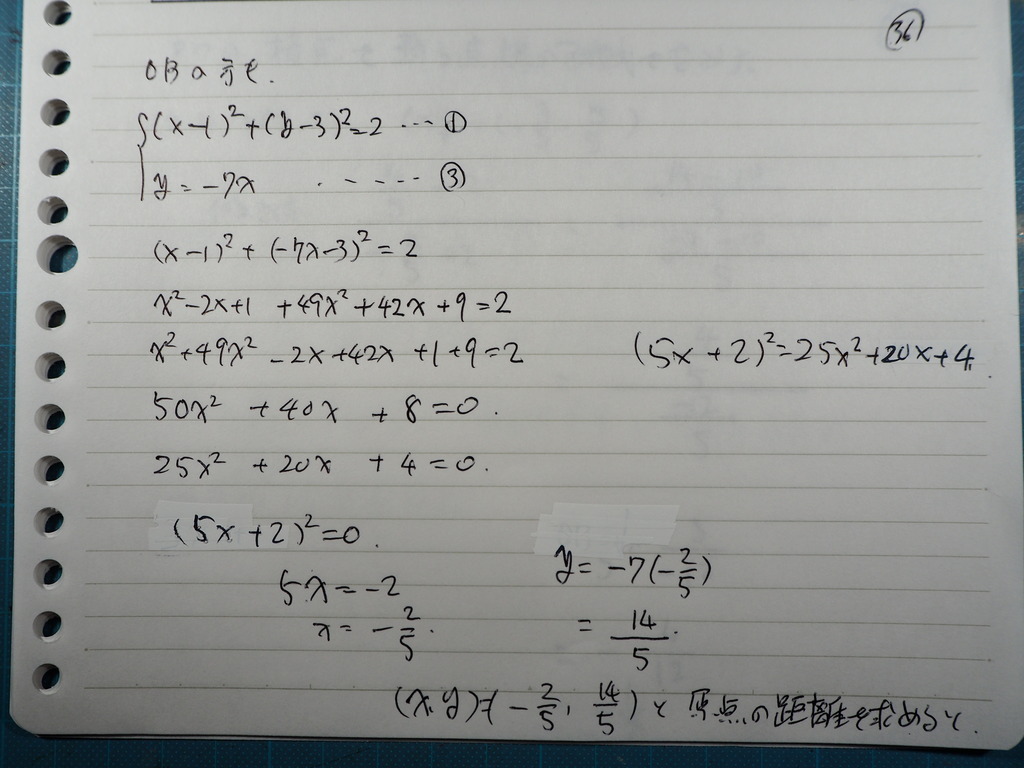 ㊱
OBの方も.
(x-1)²+(y-3)²=2 ··· ①
y = -7x ····· ③
(x-1)² + (-7x-3)² = 2
x²-2x+1 +49x²+42x+9=2
x²+49x² -2x+42x +1+9=2
(5x+2)²=25x²+20x+4.
50x² +40x +8=0.
25x² +20x +4=0.
(5x+2)²=0.
5x=-2
x= -2/5.
y= -7(-2/5)
= 14/5.
(x,y)=(-2/5, 14/5)と原点の距離を求めると.